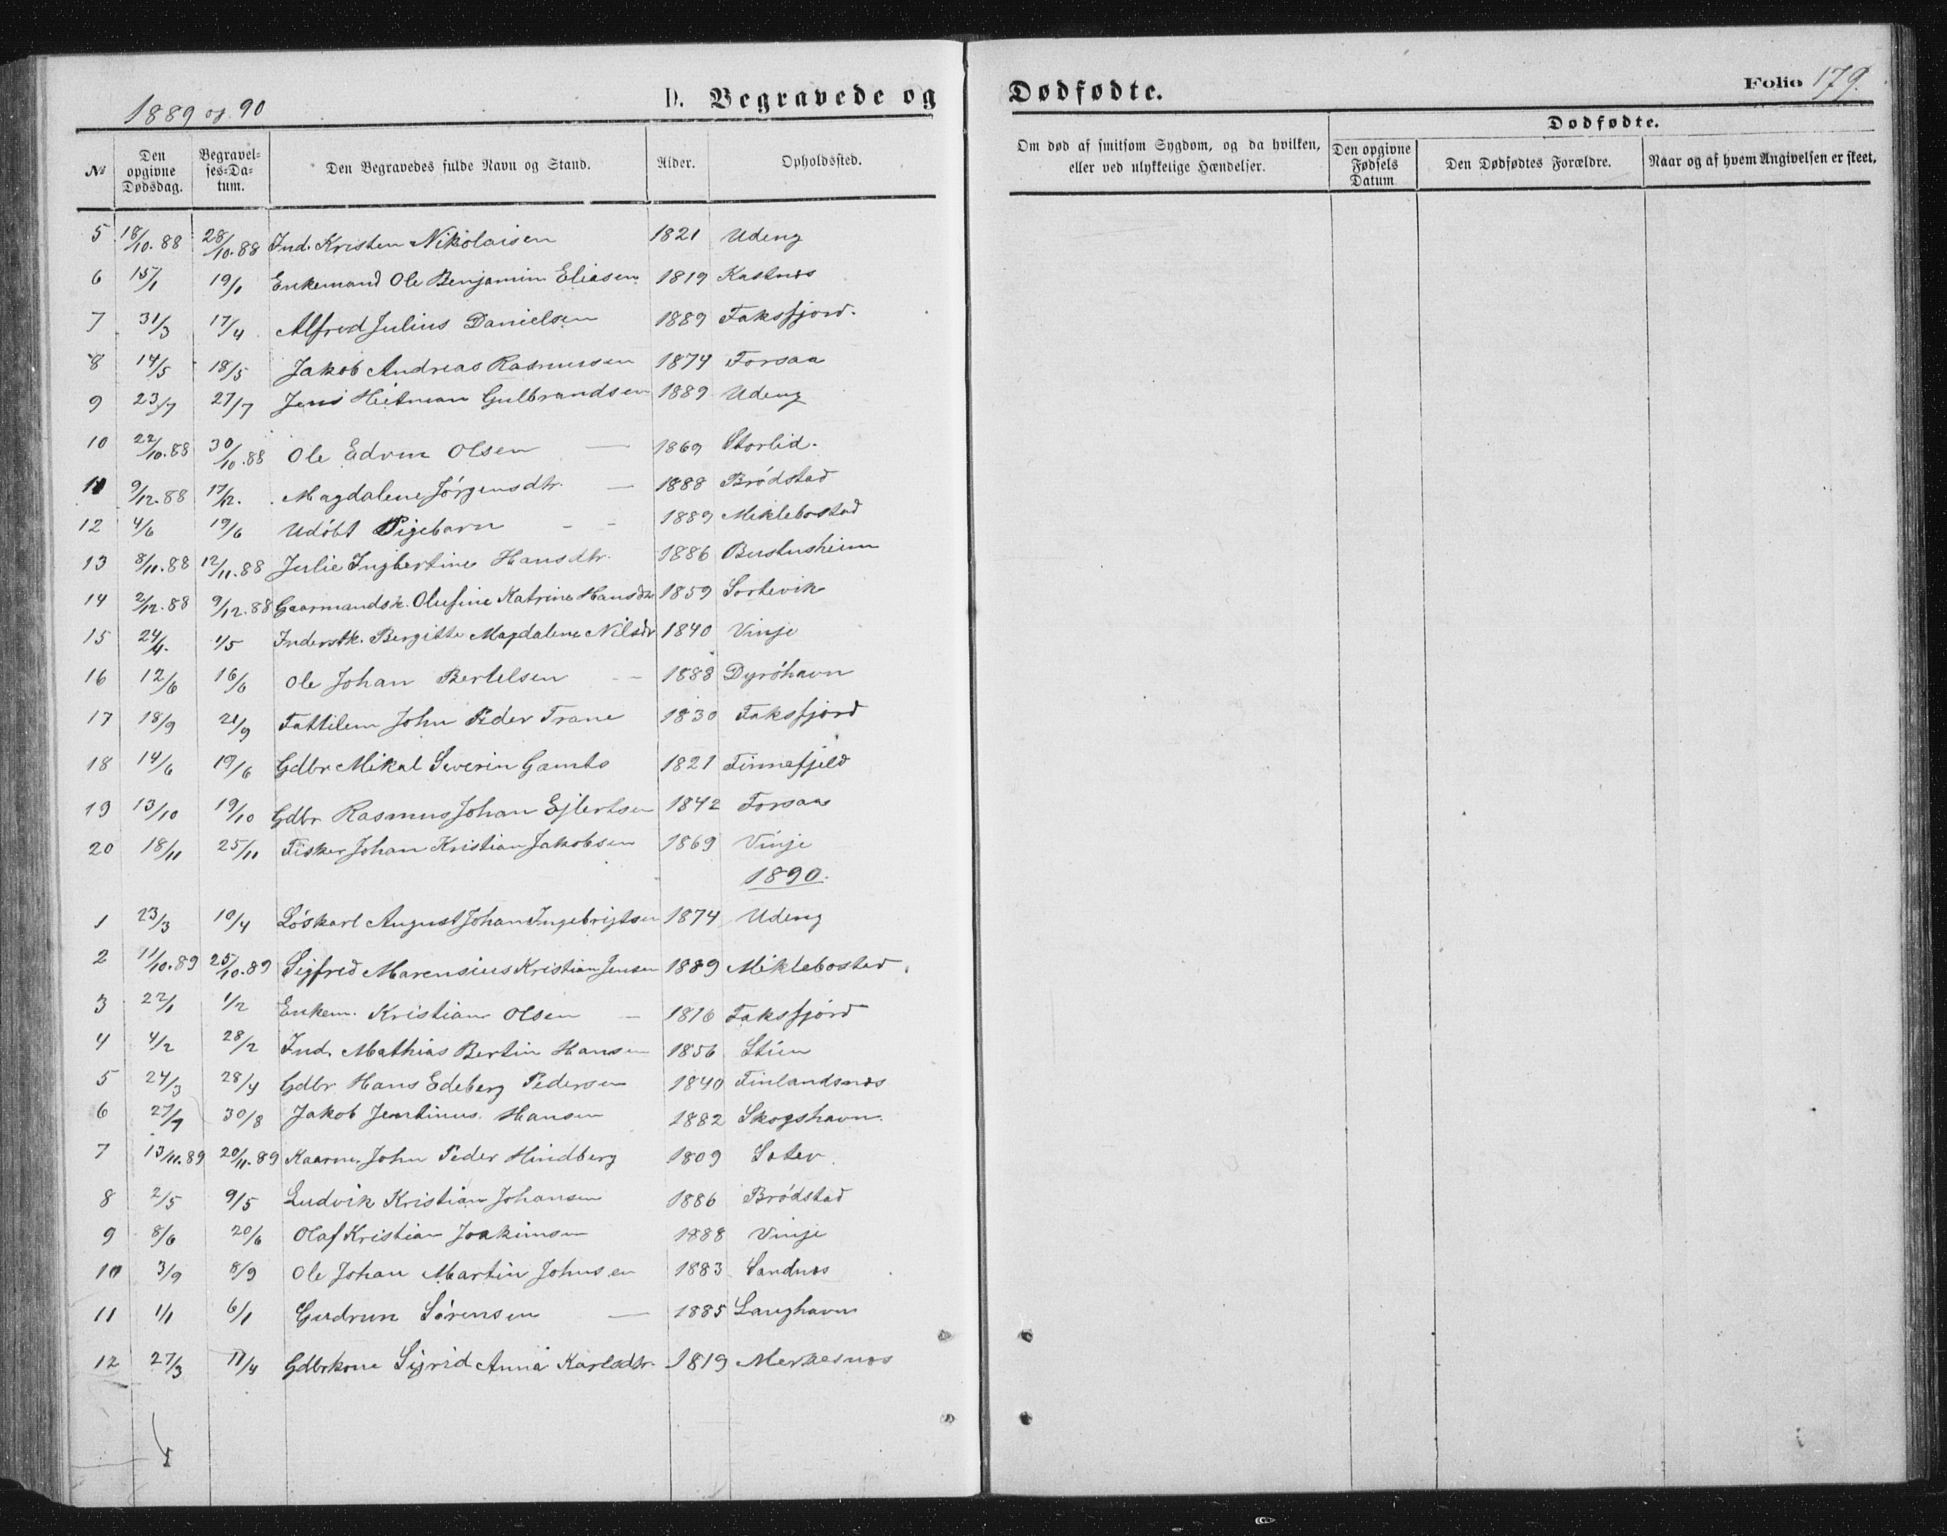 1889 og 90
D. Begravede og
Dødfødte.
Folio 179.
№ Den opgivne Dødsdag. Begravelses-Datum. Den Begravedes fulde Navn og Stand. Alder. Opholdssted.
Om død af smitsom Sygdom, og da hvilken, eller ved ulykkelige Hændelser.
Dødfødte.
Den opgivne Fødsels Datum. Den Dødfødtes Forældre. Naar og af hvem Angivelsen er skeet.
5 18/10.88 28/10.88 Ind. Kristen Nikolaisen 1821 Udeng
6 15/1 19/1 Enkemand Ole Benjamin Eliasen 1819 Kastnæs
7 31/3 17/4 Alfred Julius Danielsen 1889 Faksfjord.
8 14/5 18/5 Jakob Andreas Rasmussen 1874 Forsaa
9 23/7 27/7 Jens Heitman Gulbrandsen 1889 Udeng
10 22/10.88 30/10.88 Ole Edvin Olsen — 1869 Storlid.
11 9/12.88 17/12. Magdalene Jørgensdtr. — 1888 Brødstad
12 4/6 19/6 Udøbt Pigebarn - - 1889 Miklebostad
13 8/11.88 12/11.88 Julie Ingbertine Hansdtr. 1886 Bustusheim
14 2/12.88 9/12.88 Gaarmandsk. Olufine Katrine Hansdtr 1859 Sortevik
15 24/4. 1/5 Inderstk. Bergitte Magdalene Nilsdr 1840 Vinje
16 12/6 16/6 Ole Johan Bertelsen - - 1888 Dyröhavn
17 18/9 21/9 Fattilem John Peder Trane 1830 Faksfjord
18 14/6 19/6 Gdbr Mikal Severin Gamts 1821 Finnefjeld
19 13/10 19/10 Gdbr Rasmus Johan Ejlertsen 1842 Forsaa
20 18/11 25/11 Fisker Johan Kristian Jakobsen 1869 Vinje
1890.
1 23/3 10/4 Løskarl August Johan Ingebrigtsen 1874 Udeng
2 11/10.89 25/10.89 Sigfred Marensius Kristian Jensen 1889 Miklebostad
3 22/1 1/2 Enkem. Kristian Olsen — 1816 Faksfjord
4 4/2 28/2 Ind. Mathias Bertin Hansen 1856
5 24/3 28/4 Gdbr Hans Edeberg Pedersen 1840 Finlandsnæs
6 27/7 30/8 Jakob Jentinus Hansen 1882 Skogshavn.
7 13/11.89 20/11.89 Kaarm. John Peder Hindberg 1809
8 2/5 9/5 Ludvik Kristian Johansen 1886 Brødstad
9 8/6 20/6 Olaf Kristian Joakimsen 1888 Vinje
10 3/9 8/9 Ole Johan Martin Johnsen 1883 Sandnæs
11 1/1 6/1 Gudrun Sørensen — 1885 Langhavn
12 27/3 11/4 Gdbrkone Sigrid Anna Karlsdtr. 1819 Merkesnæs